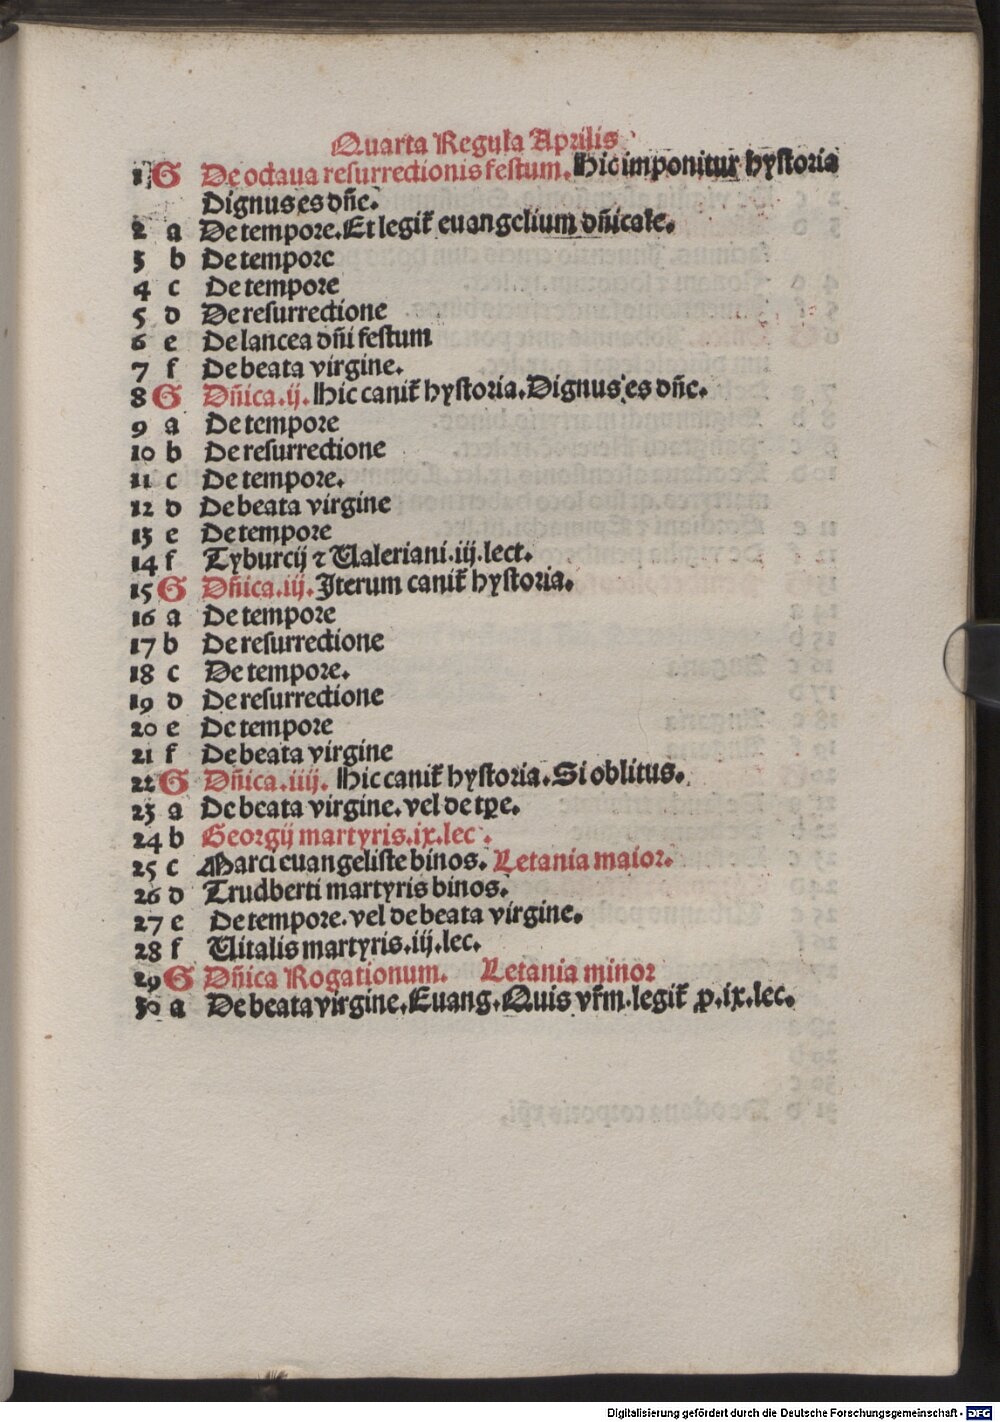 Quarta Regula Aprilis
1 G De octaua resurrectionis festum. Hic imponitur hystoria
Dignus es dñe.
2 a De tempore. Et legit̃ euangelium dñicale.
3 b De tempore
4 c De tempore
5 d De resurrectione
6 e De lancea dñi festum
7 f De beata virgine.
8 G Dñica .ij. Hic canit̃ hystoria. Dignus es dñe.
9 a De tempore
10 b De resurrectione
11 c De tempore.
12 d De beata virgine
13 e De tempore
14 f Tyburcij ⁊ Ualeriani .iij. lect.
15 G Dñica .iij. Iterum canit̃ hystoria.
16 a De tempore
17 b De resurrectione
18 c De tempore.
19 d De resurrectione
20 e De tempore
21 f De beata virgine
22 G Dñica .iiij. Hic canit̃ hystoria. Si oblitus.
23 a De beata virgine. vel de tp̄e.
24 b Georgij martyris .ix. lec.
25 c Marci euangeliste binos. Letania maior.
26 d Trudberti martyris binos.
27 e De tempore. vel de beata virgine.
28 f Uitalis martyris .iij. lec.
29 G Dñica Rogationum. Letania minor
30 a De beata virgine. Euang. Quis vr̃m. legit̃ ꝑ .ix. lec.
Digitalisierung gefördert durch die Deutsche Forschungsgemeinschaft - DFG